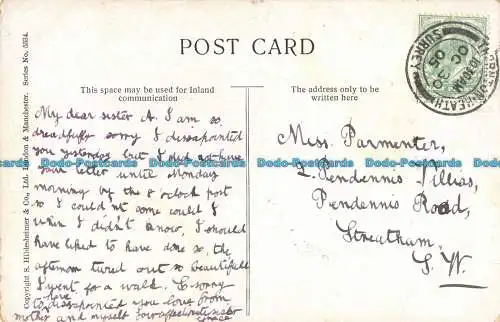 POST CARD
This space may be used for Inland
communication
The address only to be
written here
My dear sister A. I am so
dreadfully sorry I dissapointed
you yesterday but I did not have
your letter until Monday
morning by the 8 o'clock post
so I could not come could I
when I didn't know, I should
have liked to have done so, the
afternoon turned out so beautifull
I went for a walk. so sorry
to dissapointed you love from
mother and myself Your affectionate sister
Miss. Parmenter,
2. Pendennis Villias,
Pendennis Road,
Streatham,
S. W.
Copyright S. Hildesheimer & Co., Ltd. London & Manchester. Series No. 5234.
THORNTON HEATH
SURREY
OC 3
05
Bdo-Postcards Bdo-Postcards Bdo-Postcards Bdo-Postcards